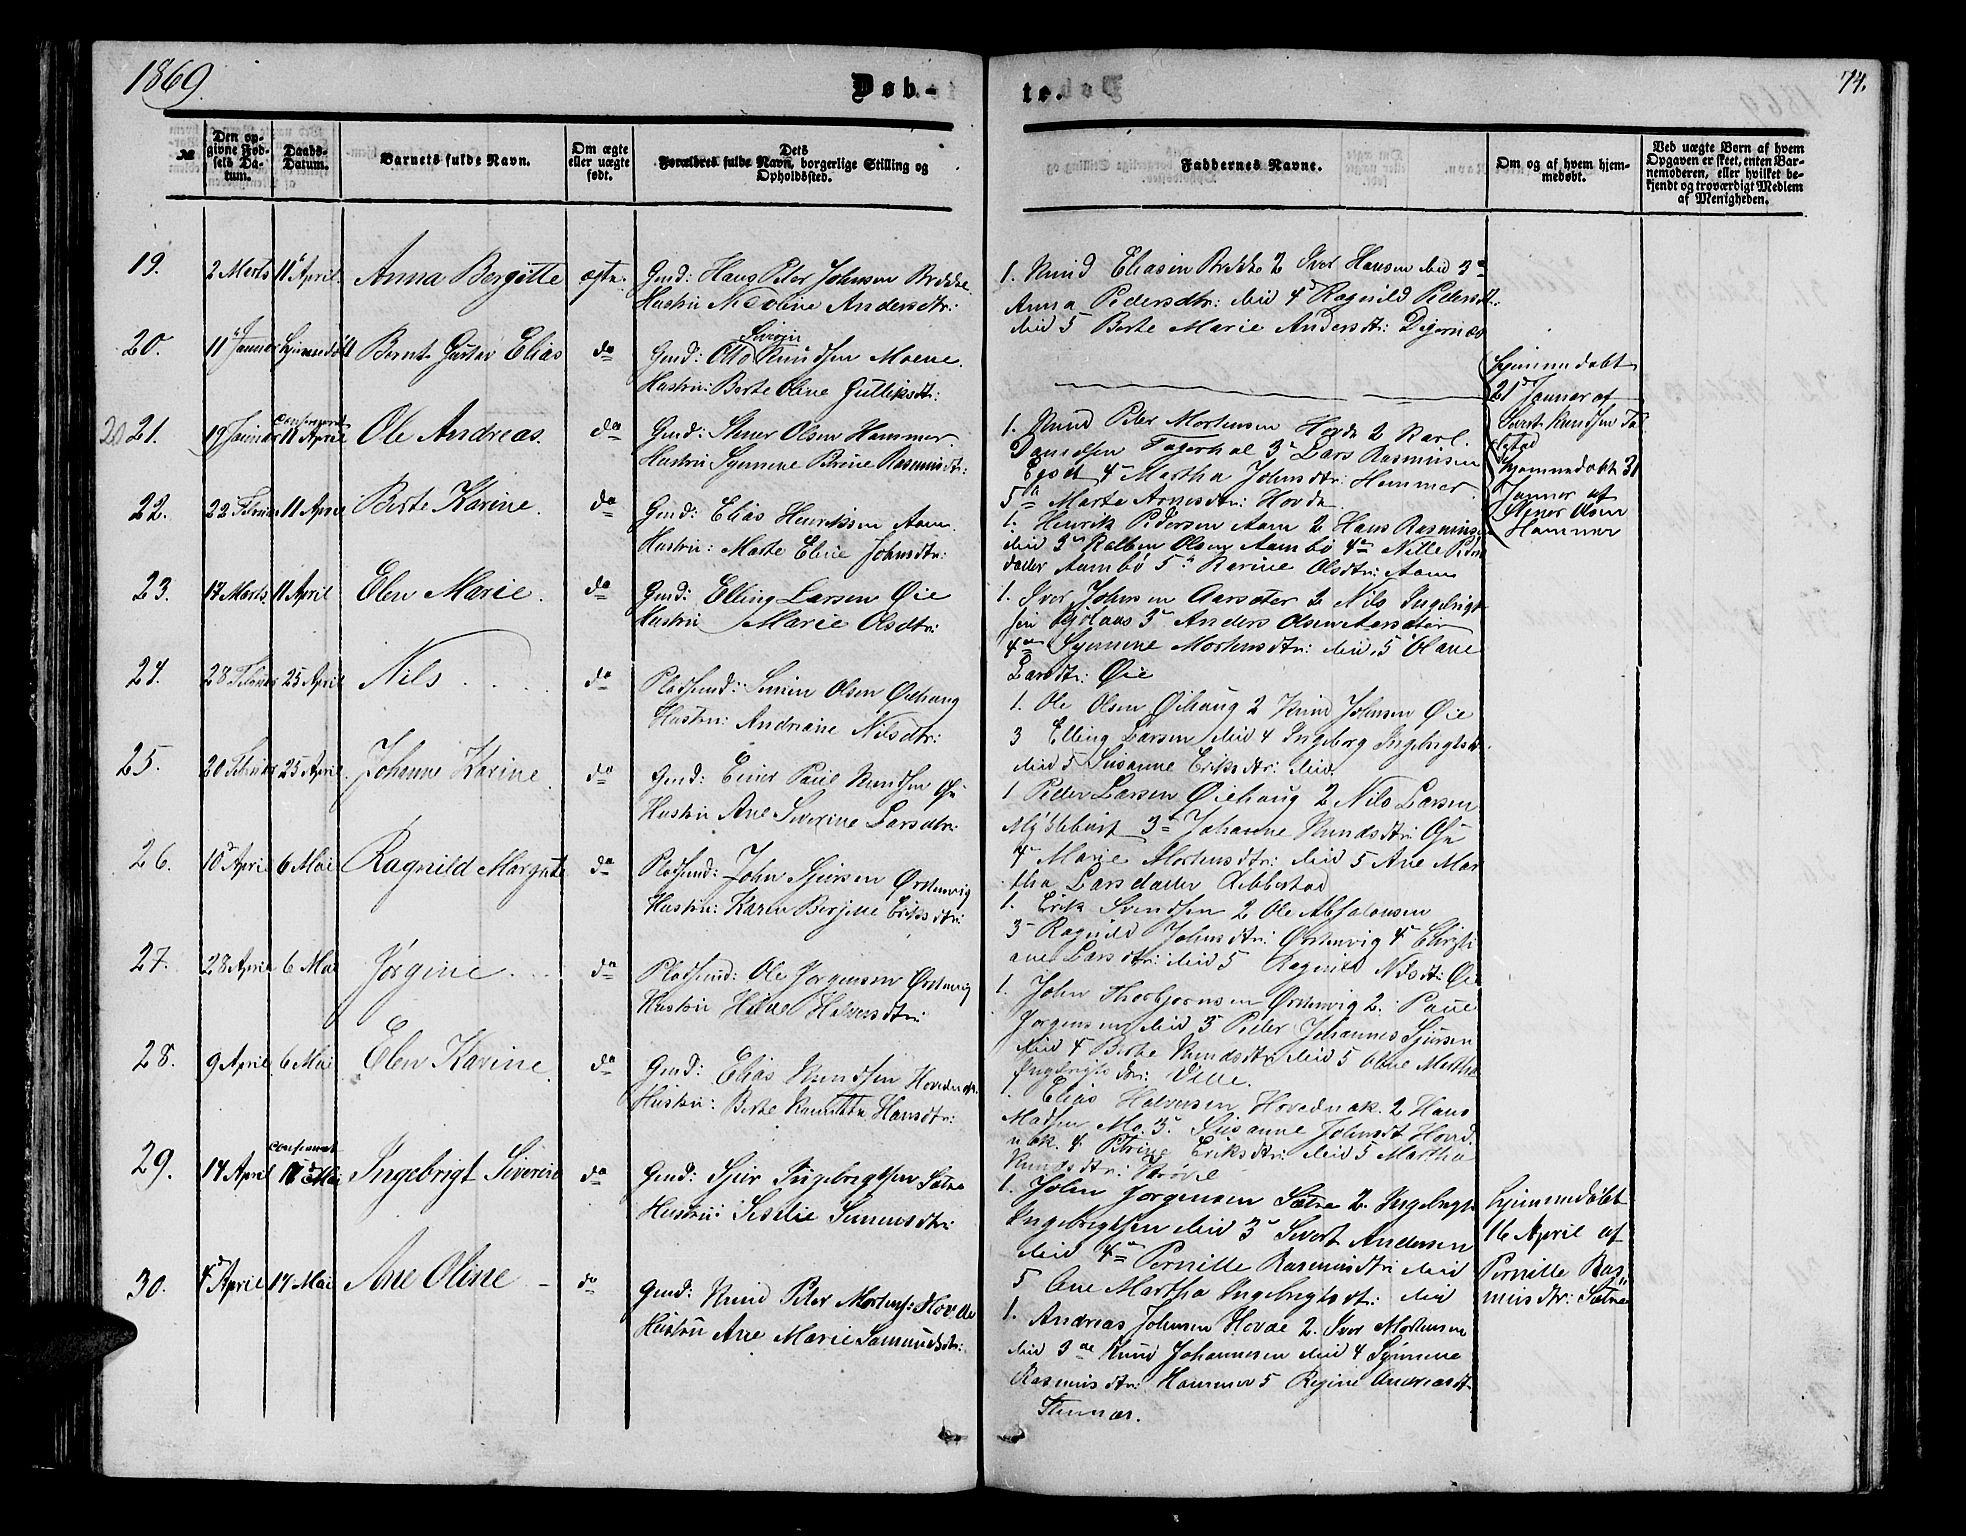 1869.
Døb-
te.
74.
№
Den op-
givne Fød-
sels Da-
tum.
Daabs-
Datum.
Barnets fulde Navn.
Om ægte
eller uægte
født.
Dets
Forældres fulde Navn, borgerlige Stilling og
Opholdssted.
Faddernes Navne.
Om og af hvem hjem-
medøbt.
Ved uægte Børn af hvem
Opgaven er skeet, enten Bar-
nemoderen, eller hvilket be-
kjendt og troværdigt Medlem
af Menigheden.
19. 2 Marts 11 April. Anna Bergitte ægte. Gmd: Hans Peter Johnsen Brekke.
Hustru Nicoline Andersdtr:
1. Knud Eliassen Brekke 2 Iver Hansen ibid 3
Anna Pedersdtr: ibid 4 Ragnild Pedersdtr:
ibid 5 Berte Marie Andersdtr: Digernæs
20. 11 Januar hjemmedøbt Bernt Gustav Elias do Gmd: Otto Knudsen Moene.
Hustru: Berte Oline Gulliksdtr:
hjemmedøbt
21 Januar af
Sivert Knudsen
20 21. 19 Januar 11 April Ole Andreas. do Gmd: Stener Olsen Hammer.
Hustru Synneve Rasmusdtr:
1. Knud Peter Mortensen Hovde 2 Karl
3 Lars Rasmusen
4 Martha Johnsdtr: Hammer.
5 Marte Arnesdtr: Hovde
hjemmedøbt 31
Januar af
Stener Olsen
Hammer
22. 22 Februar 11 April Berte Karine. do Gmd: Elias Henriksen Aam.
Hustru: Marte Eline Johnsdtr:
1. Henrik Pedersen Aam 2 Hans Rasmusen
ibid 3 Olsen Aambø 4 Nille Peders
datter Aambø 5 Karine Olsdtr: Aam
23. 17 Marts. 11 April Elen Marie. do Gmd: Elling Larsen Øie
Hustru Marie Olsdtr:
1. Iver Johnsen Aarseter 2 Nils Ingebrigt
sen 3 Anders Olsen Aarseter
4 Synneve Mortensdtr: ibid. 5 Oline
Larsdtr: Øie
24. 28 Februar 25 April Nils do Pladsmd: Simen Olsen Øiehaug
Hustru: Andriane Nilsdtr:
1. Ole Olsen Øiehaug 2 Knud Johnsen Øie
3 Elling Larsen ibid 4 Ingeborg Ingebrigtsdtr.
ibid 5 Susanne Eriksdtr: ibid.
25. 20 Februar 25 April. Johanne Karine do Gmd: Einer Paul Knudsen Øie
Hustru Ane Severine Larsdtr:
1 Peder Larsen Øiehaug 2 Nils Larsen
Myklebust 3 Johanne Knudsdtr: Øie
4 Marie Mortensdtr: ibid 5 Ane Mar
tha Larsdatter
26. 10 April 6 Mai Ragnild Margrete do Pladsmd: John Sjursen Ørstenvig
Hustru: Karen Berjitte Eriksdtr:
1. Erik Svendsen 2 Ole Absalonsen
3 Ragnild Johnsdtr: Ørstenvig 4 Christi
ane Larsdtr: ibid 5 Ragnild Nilsdtr: Øie
27. 28 April 6 Mai Jørgine do Pladsmd: Ole Jørgensen Ørstenvig
Hustru Halvorsdtr:
1. John Thorbjørnsen Ørstenvig 2. Paul
Jørgensen ibid 3 Peder Johannes Sjursen
ibid 4 Berte Knudsdtr: ibid 5 Oline Martha
Ingebrigtsdtr: Velle.
28. 9 April 6 Mai Elen Karine. do Gmd: Elias Knudsen Hovednak.
Hustru: Berte Hansdtr:
1. Elias Halvorsen Hovednak. 2 Hans
Madsen Mo. 3. Susanne Johnsdtr Hoved
nak. 4. Petrine Eriksdtr: ibid 5 Martha
Knudsdtr:
29. 14 April 17 Mai Ingebrigt Severin do Gmd: Sjur Ingebrigtsen Sætre
Hustru: Siselie Simensdtr:
1. John Jørgensen Sætre 2. Ingebrigt
Ingebrigtsen ibid 3 Sivert Andersen
ibid 4 Pernille Rasmusdtr: ibid
5 Ane Martha Ingebrigtsdtr: ibid
hjemmedøbt
16 April af
Pernille Ras
musdtr: Sætre
30. 4 April 17 Mai Ane Oline do Gmd: Knud Peter Mortens: Hovde
Hustru Ane Marie Samundsdtr:
1. Andreas Johnsen Hovde 2. Iver Mortensen
ibid 3 Knud Johannesen ibid 4 Synneve
Rasmusdtr: Hammer 5 Regine Andreasdtr